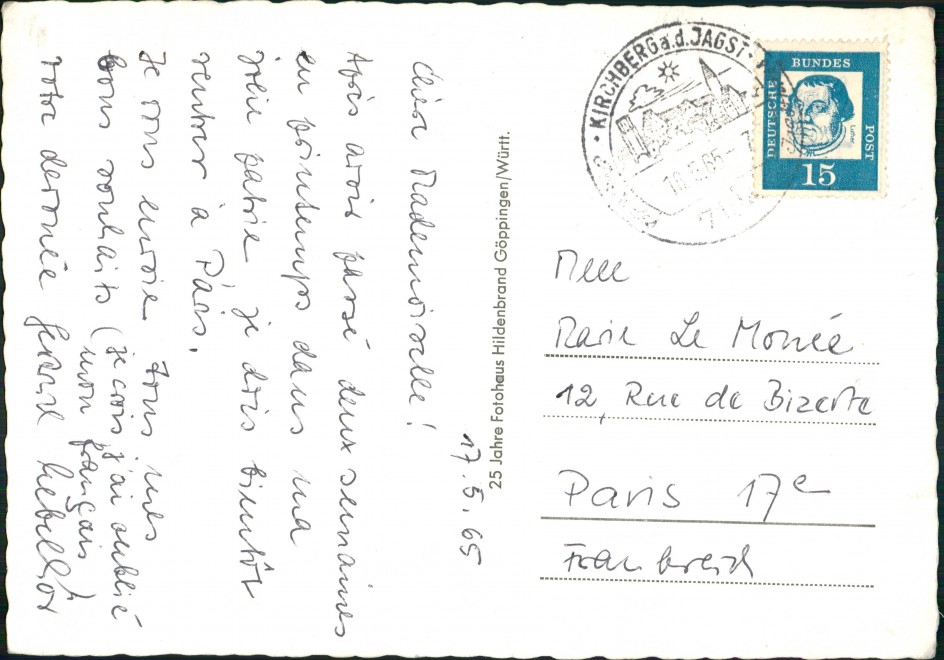 17.5.65
Chère Mademoiselle!
Après avoir passé deux semaines
en printemps dans ma
jolie patrie je dois bientôt
rentrer à Paris.
Je vous envoie tous mes
bons souhaits (je crois, j'ai oublié
mon français!)
votre dévouée
25 Jahre Fotohaus Hildenbrand Göppingen/Württ.
KIRCHBERG a.d. JAGST
DEUTSCHE
BUNDES
POST
Luther
15
Mlle
Marie Le Monée
12, Rue de Bizerte
Paris 17e
Frankreich